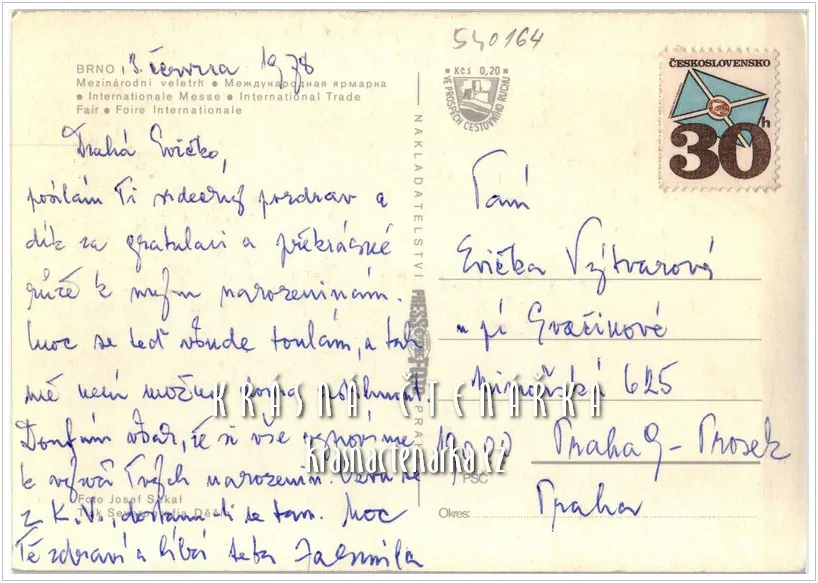 540164
BRNO, 3. června 1978
Mezinárodní veletrh ● Международная ярмарка
● Internationale Messe ● International Trade
Fair ● Foire Internationale
Drahá Evičko,
posílám Ti srdečný pozdrav a
dík za gratulaci a překrásné
růže k mým narozeninám.
Moc se teď všude toulám, a tak
mě není možno doma
Doufám však, že si vše
k výročí Tvých narozenin.
z K. V., se tam. Moc
Tě zdraví a líbá teta Jarmila
Foto Josef
Tisk Severografia Děčín
NAKLADATELSTVÍ PRESSFOTO PRAHA
Kčs 0,20
VE PROSPĚCH CESTOVNÍHO RUCHU
ČESKOSLOVENSKO
30h
Paní
Evička Výtvarová
u pí
625
Praha 9 - Prosek
PSČ
Okres: Praha
KRÁSNÁ ČTENÁŘKA
krasnactenarka.cz